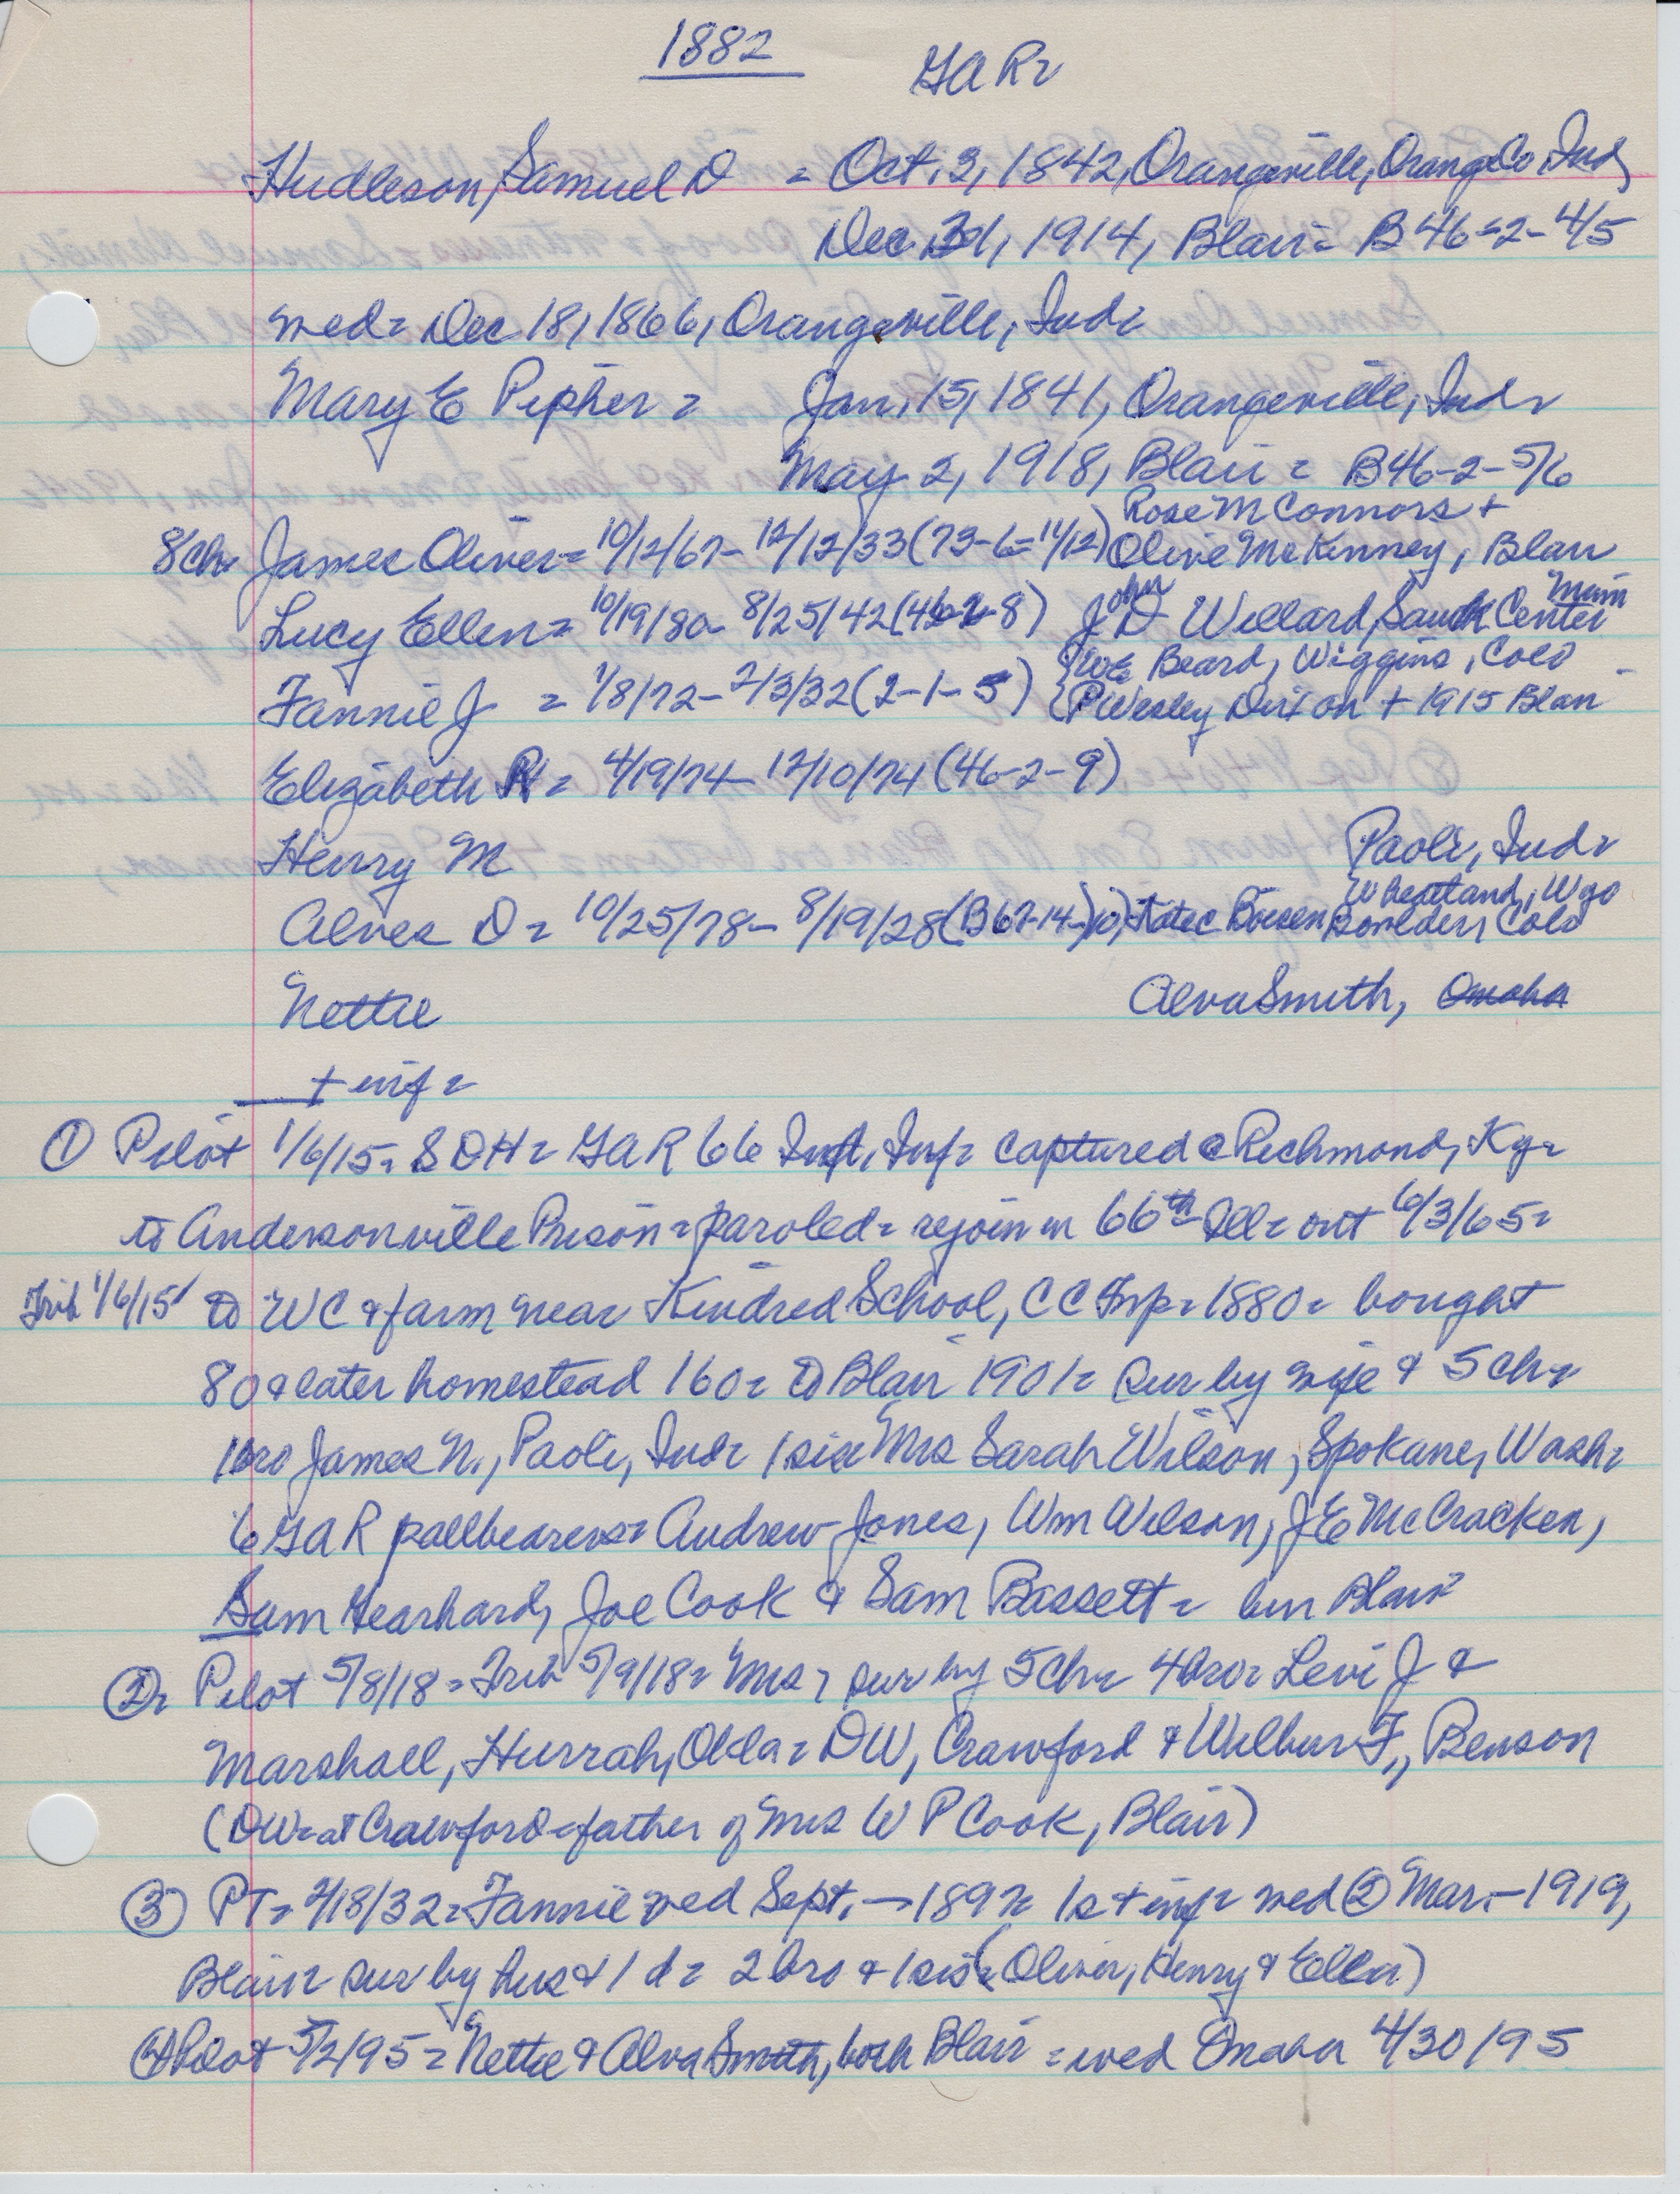 1882
GAR=
Hudleson, Samuel D = Oct. 3, 1842, Orangeville, Orange Co Ind,
Dec 31, 1914, Blair = B 46-2-4/5
wed = Dec 18, 1866, Orangeville, Ind=
Mary E Pipher = Jan. 15, 1841, Orangeville, Ind=
May 2, 1918, Blair = B46-2-5/6
Rose M Connors +
8 ch= James Oliver = 10/12/67- 12/12/33 (73-6-11/12) Olive McKinney, Blair
Lucy Ellen = 10/19/80- 8/25/42 (46-2-8) John D Willard, Sauk Center Minn
WE Beard, Wiggins, Colo
Fannie J = 1/8/72- 2/3/32 (2-1-5) P Wesley Dixon + 1915 Blair
Elizabeth = 4/19/74- 12/10/74 (46-2-9)
Henry M Paoli, Ind=
Wheatland, Wyo
Alves D = 10/25/78- 8/19/28 (B67-14-10) Boulder, Colo
Nettie Alva Smith, Omaha
+ inf =
① Pilot 1/6/15 = S D H = GAR 66 Inf = captured @ Richmond, Ky=
to Andersonville Prison = paroled = rejoin in 66th Ill = out 6/3/65 =
Trib 1/6/15 to WC & farm near Kindred School, CC Twp = 1880 = bought
80 & later homestead 160 = to Blair 1901 = sur by wife & 5 ch=
1 bro James N., Paoli, Ind= 1 sis Mrs Sarah Wilson, Spokane, Wash=
6 GAR pallbearers = Andrew Jones, Wm Wilson, J E McCracken,
Sam Gearhard, Joe Cook & Sam Bassett = bur Blair
②= Pilot 5/8/18 = Trib 5/9/18 = Mrs, sur by 5 ch= 4 bro = Levi J &
Marshall, Hurrah, Okla = DW, Crawford & Wilbur F., Benson
(DW = at Crawford = father of Mrs W P Cook, Blair)
③ PT = 2/18/32 = Fannie wed Sept. - 1892 1 s + inf = wed ② Mar. - 1919,
Blair = sur by hus & 1 d = 2 bro & 1 sis (Oliver, Henry & Ellen)
④ Pilot 5/2/95 = Nettie & Alva Smith, both Blair = wed Omaha 4/30/95